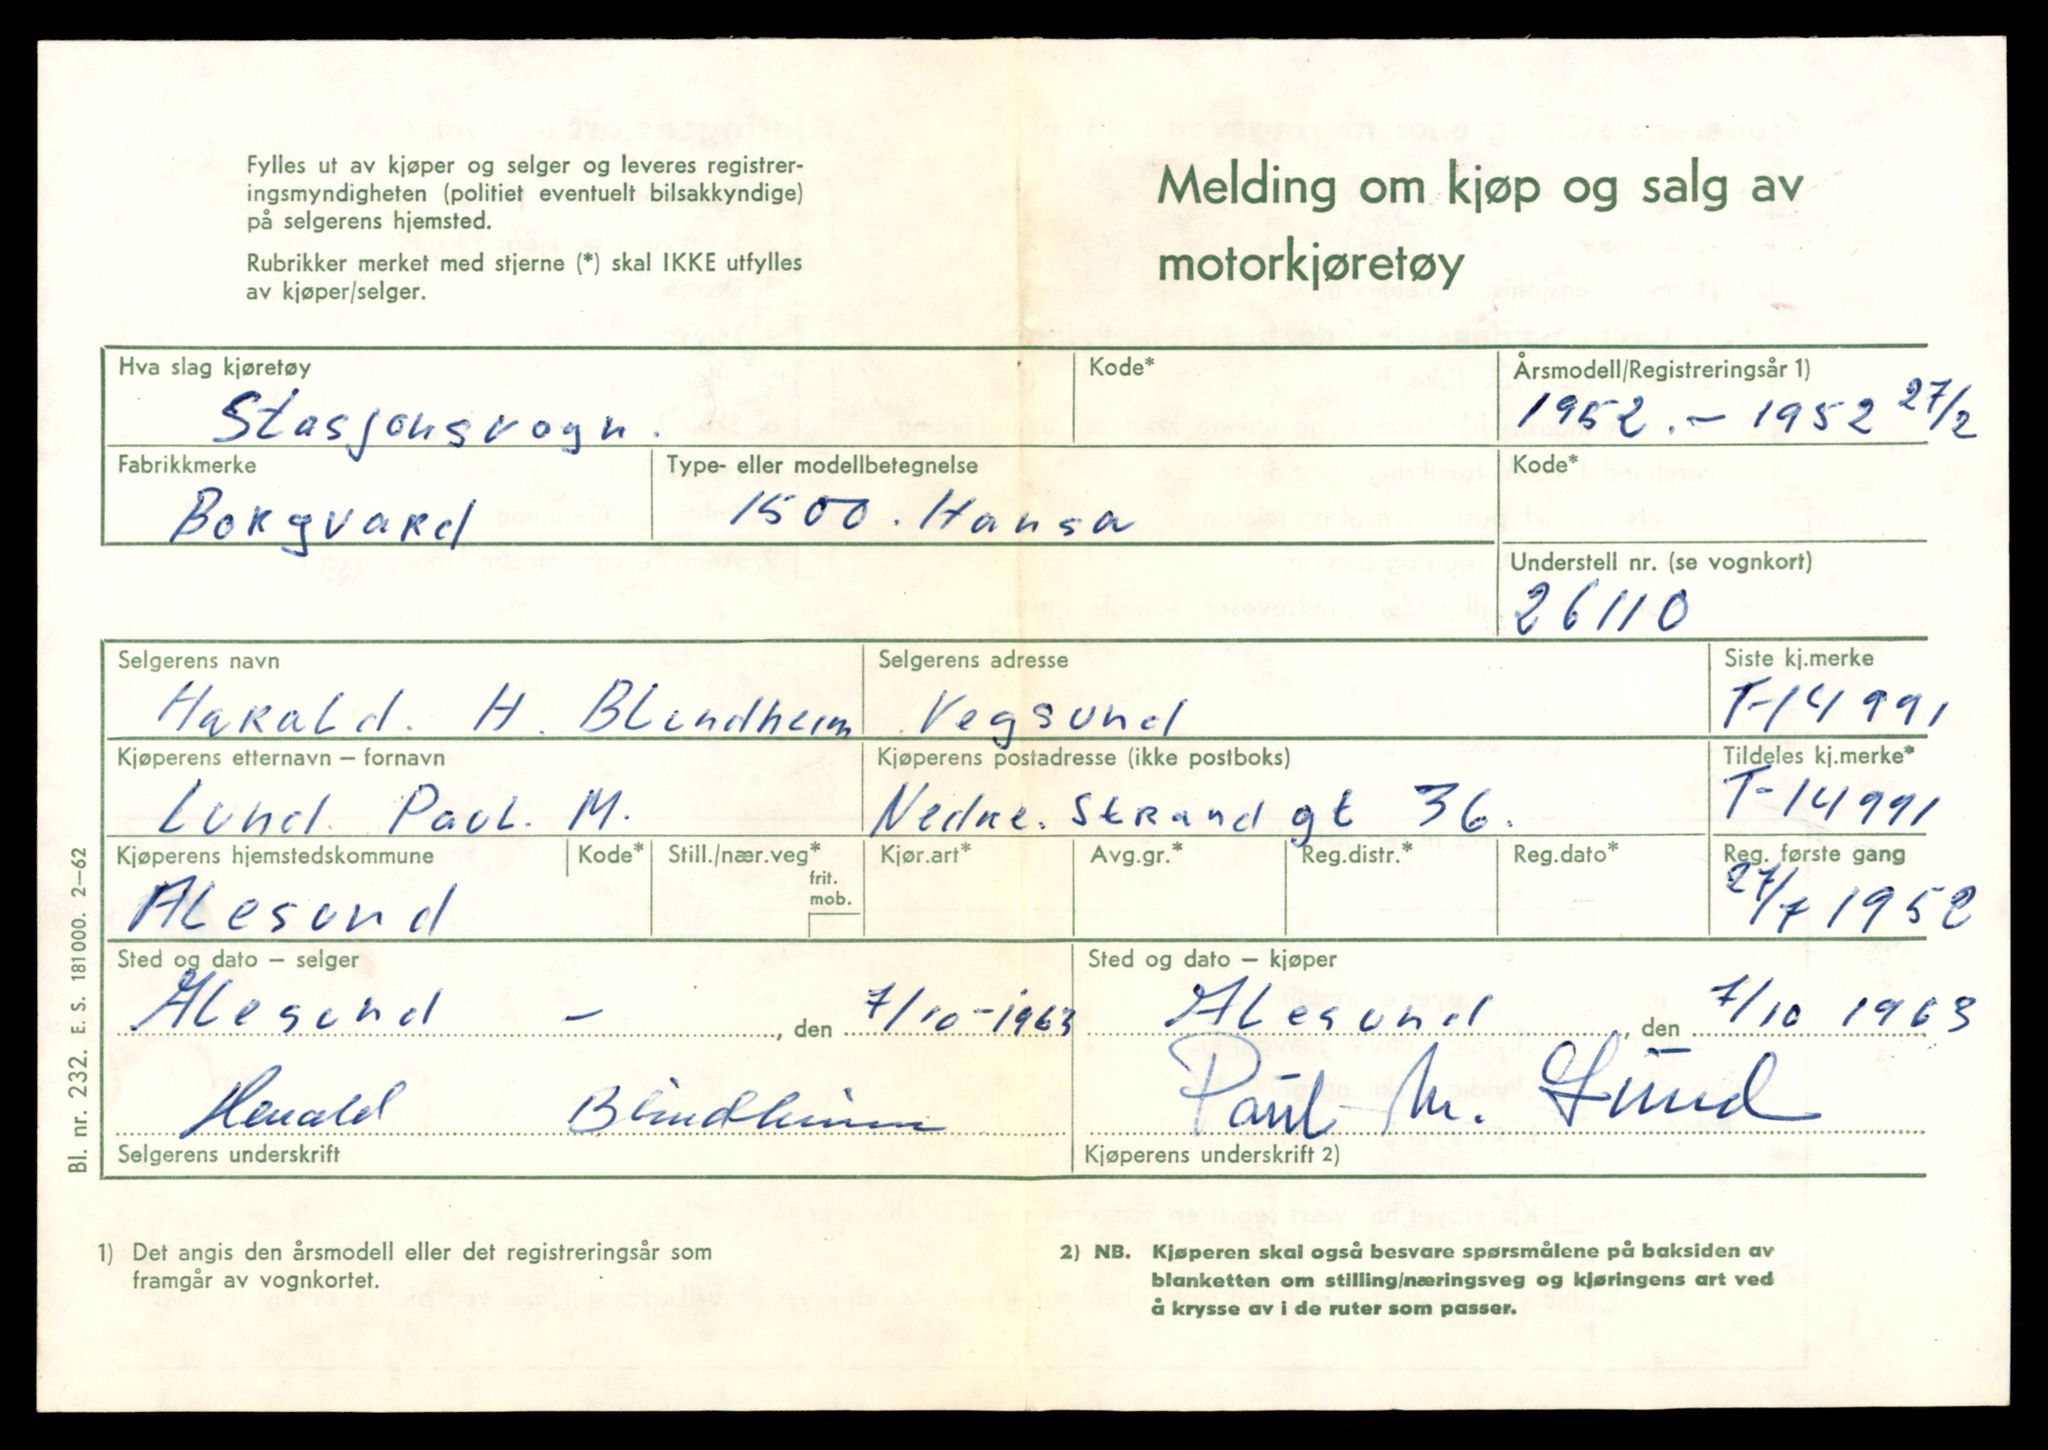 Fylles ut av kjøper og selger og leveres registrer-
ingsmyndigheten (politiet eventuelt bilsakkyndige)
på selgerens hjemsted.
Rubrikker merket med stjerne (*) skal IKKE utfylles
av kjøper/selger.
Melding om kjøp og salg av
motorkjøretøy
Hva slag kjøretøy
Stasjonsvogn.
Kode*
Årsmodell/Registreringsår 1)
1952. – 1952 27/2
Fabrikkmerke
Borgvard
Type- eller modellbetegnelse
1500. Hansa
Kode*
Understell nr. (se vognkort)
26110
Selgerens navn
Harald. H. Blindheim
Selgerens adresse
Vegsund
Siste kj.merke
T-14991
Kjøperens etternavn – fornavn
Lund. Paul. M.
Kjøperens postadresse (ikke postboks)
Nedre. Strandgt 36.
Tildeles kj.merke*
T-14991
Kjøperens hjemstedskommune
Ålesund
Kode*
Still./nær.veg*
frit.
mob.
Kjør.art*
Avg.gr.*
Reg.distr.*
Reg.dato*
Reg. første gang
27/7 1952
Sted og dato – selger
Ålesund – , den 7/10-1963
Harald Blindheim
Selgerens underskrift
Sted og dato – kjøper
Ålesund , den 7/10 1963
Paul M. Lund
Kjøperens underskrift 2)
Bl. nr. 232. E. S. 181 000. 2–62
1) Det angis den årsmodell eller det registreringsår som
framgår av vognkortet.
2) NB. Kjøperen skal også besvare spørsmålene på baksiden av
blanketten om stilling/næringsveg og kjøringens art ved
å krysse av i de ruter som passer.